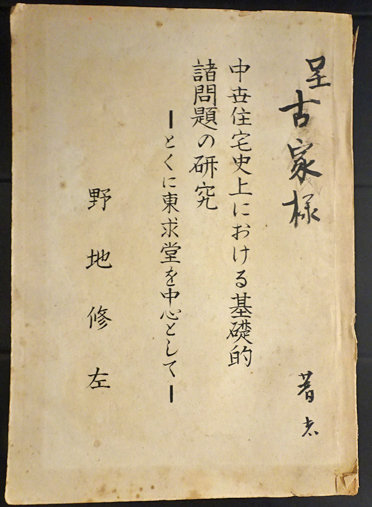 呈 古家様
著者
中世住宅史上における基礎的
諸問題の研究
ーとくに東求堂を中心としてー
野地修左